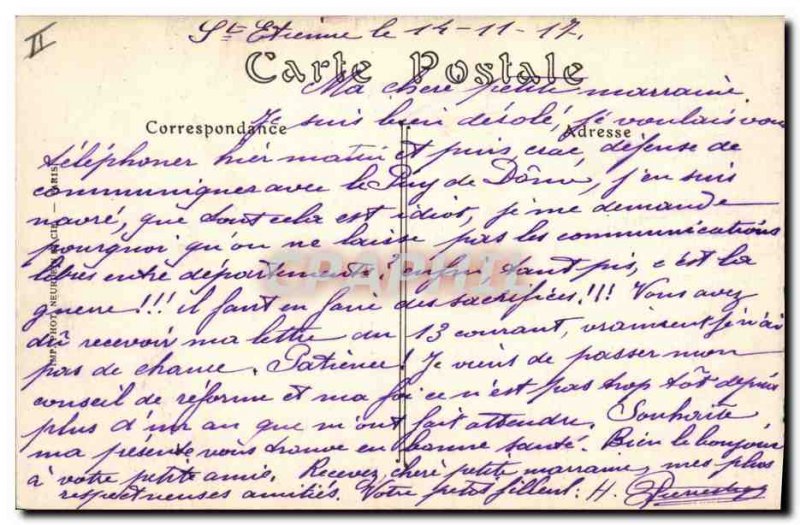 II
St Etienne le 14-11-17.
Carte Postale
Ma chère petite marraine.
Je suis bien désolé, je voulais vous
Correspondance
Adresse
téléphoner hier matin et puis crac défense de
communiquer avec le Puy de Dôme, j'en suis
navré, que tout cela est idiot, je me demande
pourquoi qu'on ne laisse pas les communications
libres entre départements? enfin, tant pis, c'est la
guerre!!! il faut en faire des sacrifices.!!! Vous avez
dû recevoir ma lettre du 13 courant, vraiment je n'ai
pas de chance. Patience! Je viens de passer mon
conseil de réforme et ma foi ce n'est pas trop tôt depuis
plus d'un an que m'ont fait attendre. Souhaite
ma présente vous trouve en bonne santé. Bien le bonjour
à votre petite amie. Recevez, chère petite marraine, mes plus
respectueuses amitiés. Votre petit filleul: H.
IMP. PHOT. NEURDEIN ET CIE. — PARIS
CPAPHIL